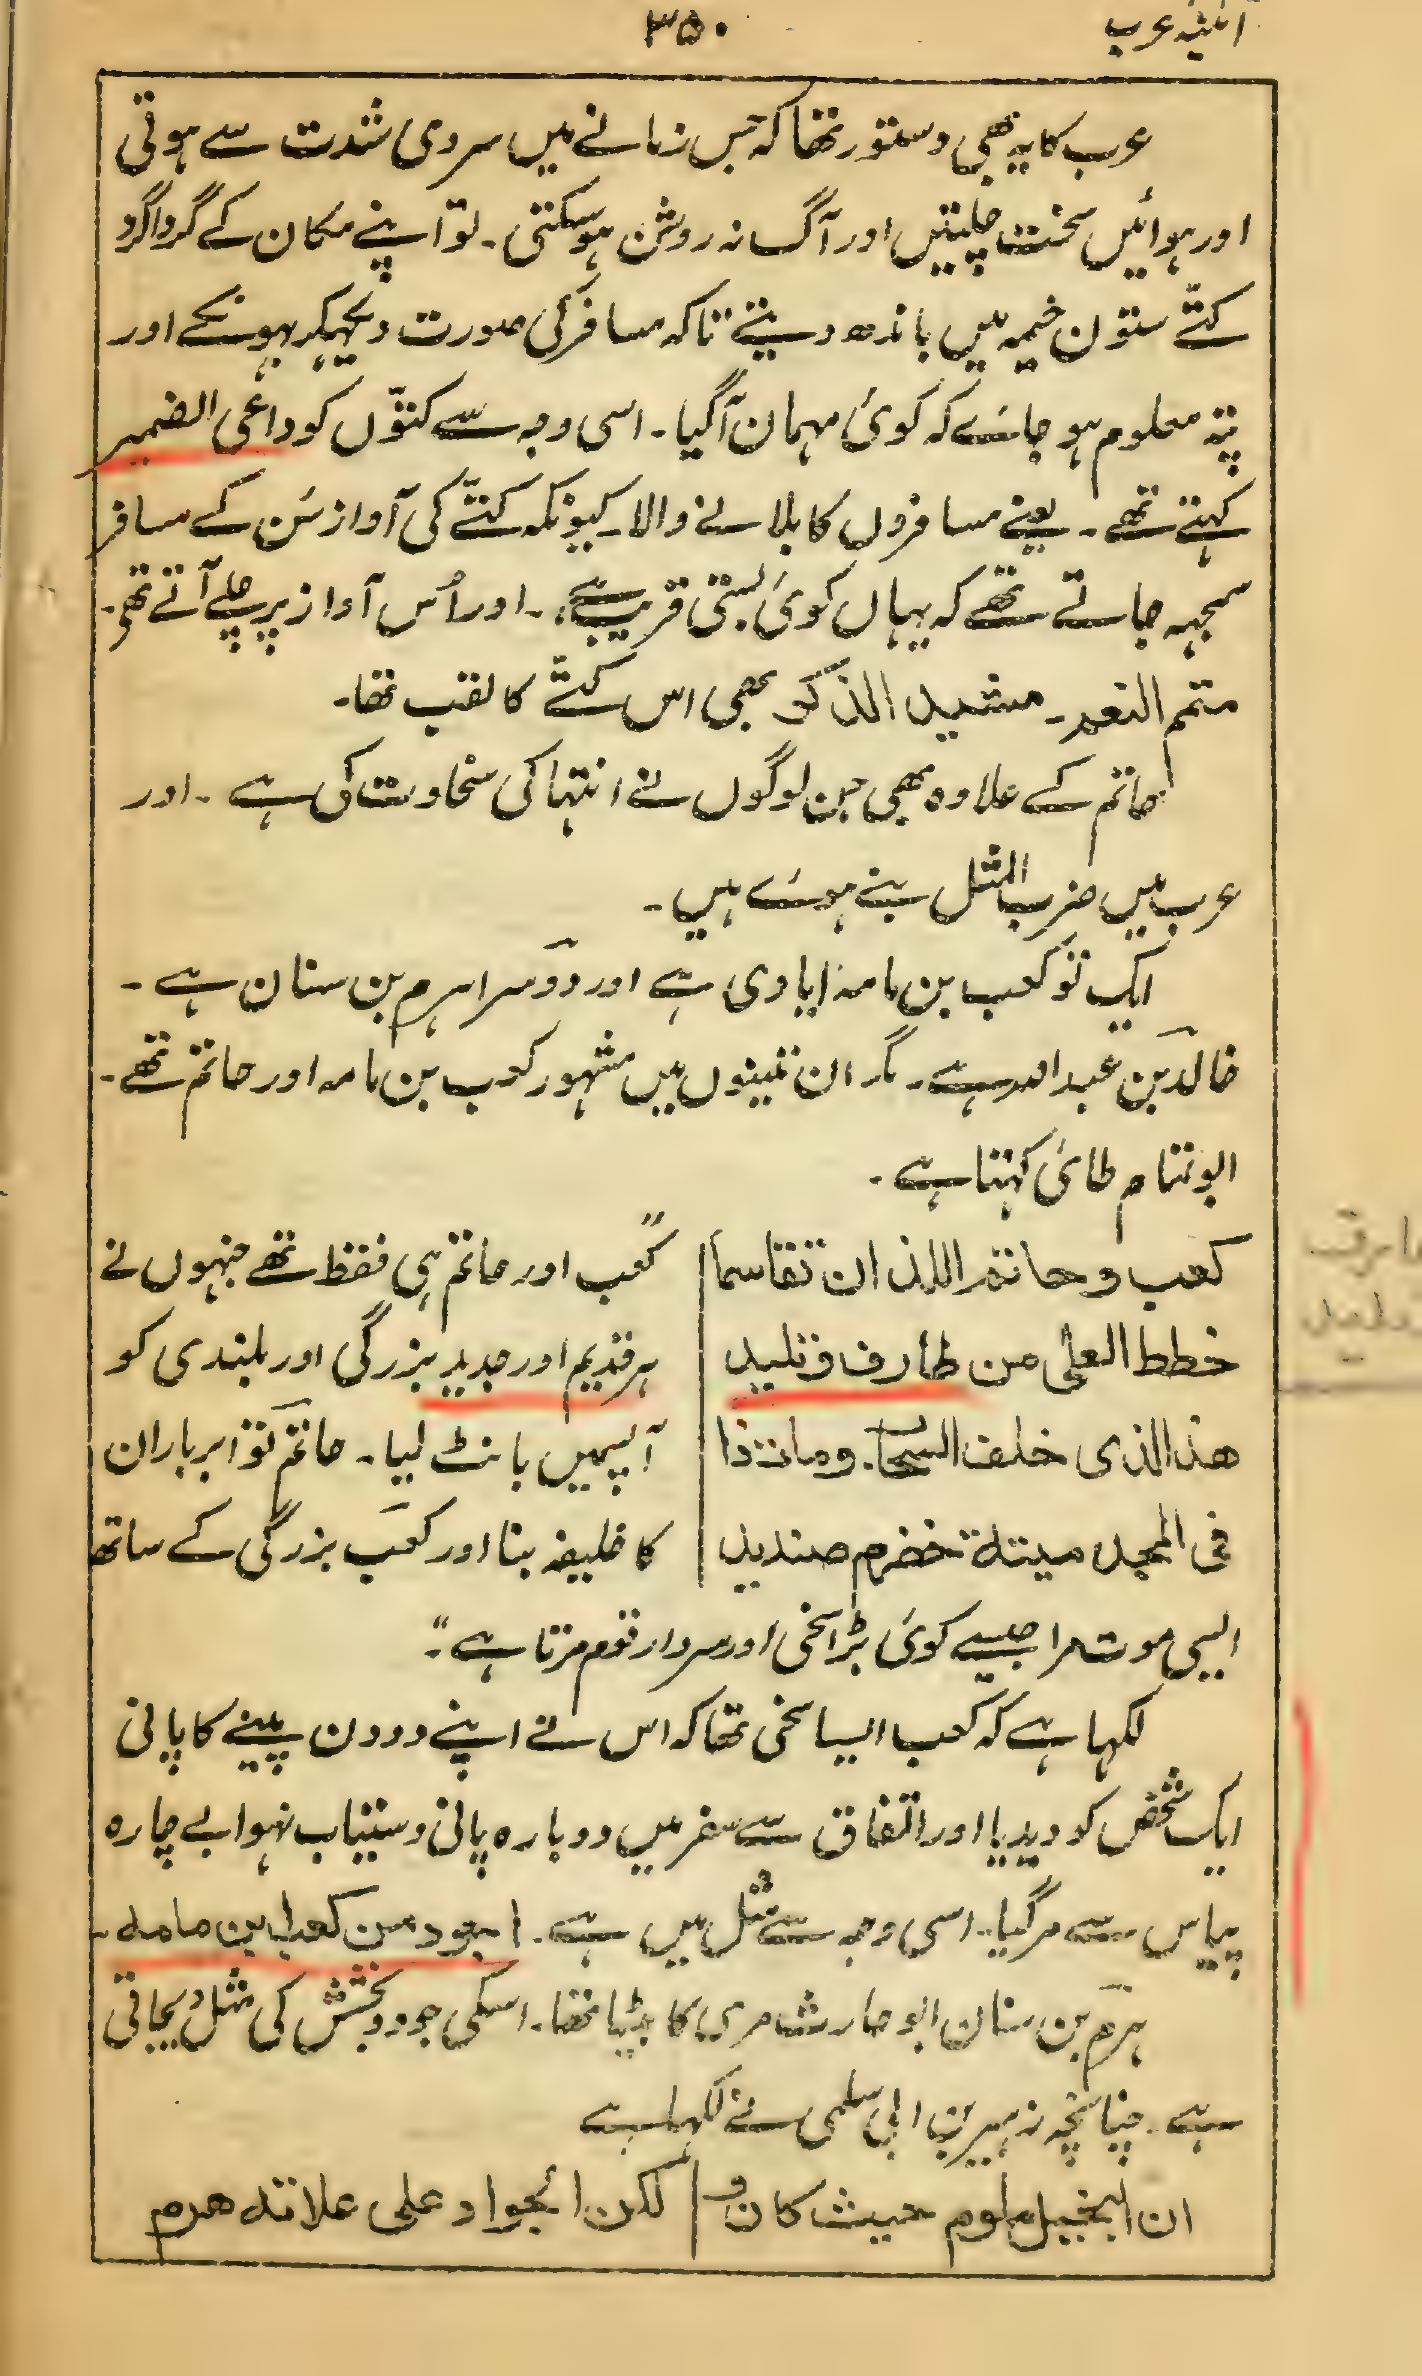 آئینۂ عرب
۳۵۰
عرب کا یہ بھی دستور تھا کہ جس زمانے میں سردی شدت سے ہوتی
اور ہوائیں سخت چلتیں اور آگ نہ روشن ہوسکتی۔ تو اپنے مکان کے گرداگرد
کتّے ستون خیمہ میں باندھ دیتے تاکہ مسافر کی صورت دیکھکر بھونکے اور
پتہ معلوم ہو جائے کہ کوئی مہمان آگیا۔ اسی وجہ سے کتّوں کو داعی الضمیر
کہتے تھے۔ یعنے مسافروں کا بلانے والا۔ کیونکہ کتّے کی آواز سُن کے مسافر
سمجہہ جاتے تھے کہ یہاں کوئی بستی قریب ہے۔ اور اُس آواز پر چلے آتے تھے۔
متمم النعم۔ مشید الذکر بھی اس کتّے کا لقب تھا۔
حاتم کے علاوہ بھی جن لوگوں نے انتہا کی سخاوت کی ہے۔ اور
عرب میں ضرب المثل بنے ہوئے ہیں۔
ایک تو کعب بن مامہ ایادی ہے اور دوسرا ہرم بن سنان ہے۔
خالد بن عبداللہ ہے۔ مگر ان تینوں میں مشہور کعب بن مامہ اور حاتم تھے۔
ابو تمام طائی کہتا ہے۔
کعب وحاتم اللذان تقاسما | "کعب اور حاتم ہی فقط تھے جنہوں نے
خطط العلی من طارف وتلید | ہر قدیم اور جدید بزرگی اور بلندی کو
ھذا الذی خلف السحاب ومات ذا | آپسمیں بانٹ لیا۔ حاتم تو ابر باران
فی المجد میتة خضرم صندید | کا خلیفہ بنا اور کعب بزرگی کے ساتھ
ایسی موت مرا جیسے کوئی بڑا سخی اور سردار قوم مرتا ہے"۔
لکہا ہے کہ کعب ایسا سخی تھا کہ اس نے اپنے دو دن پینے کا پانی
ایک شخص کو دیدیا اور اتفاق سے سفر میں دوبارہ پانی دستیاب نہوا بے چارہ
پیاس سے مر گیا۔ اسی وجہ سے مثل میں ہے۔ اجود من کعب ابن مامہ۔
ہرم بن سنان ابو حارث مری کا بیٹا تھا۔ اسکی جود و بخشش کی مثل دیجاتی
ہے۔ چنانچہ زہیر بن ابی سلمی نے لکہا ہے
ان البخیل ملوم حیث کان و | لکن الجواد علی علاتہ ھرم
طارف
تلید